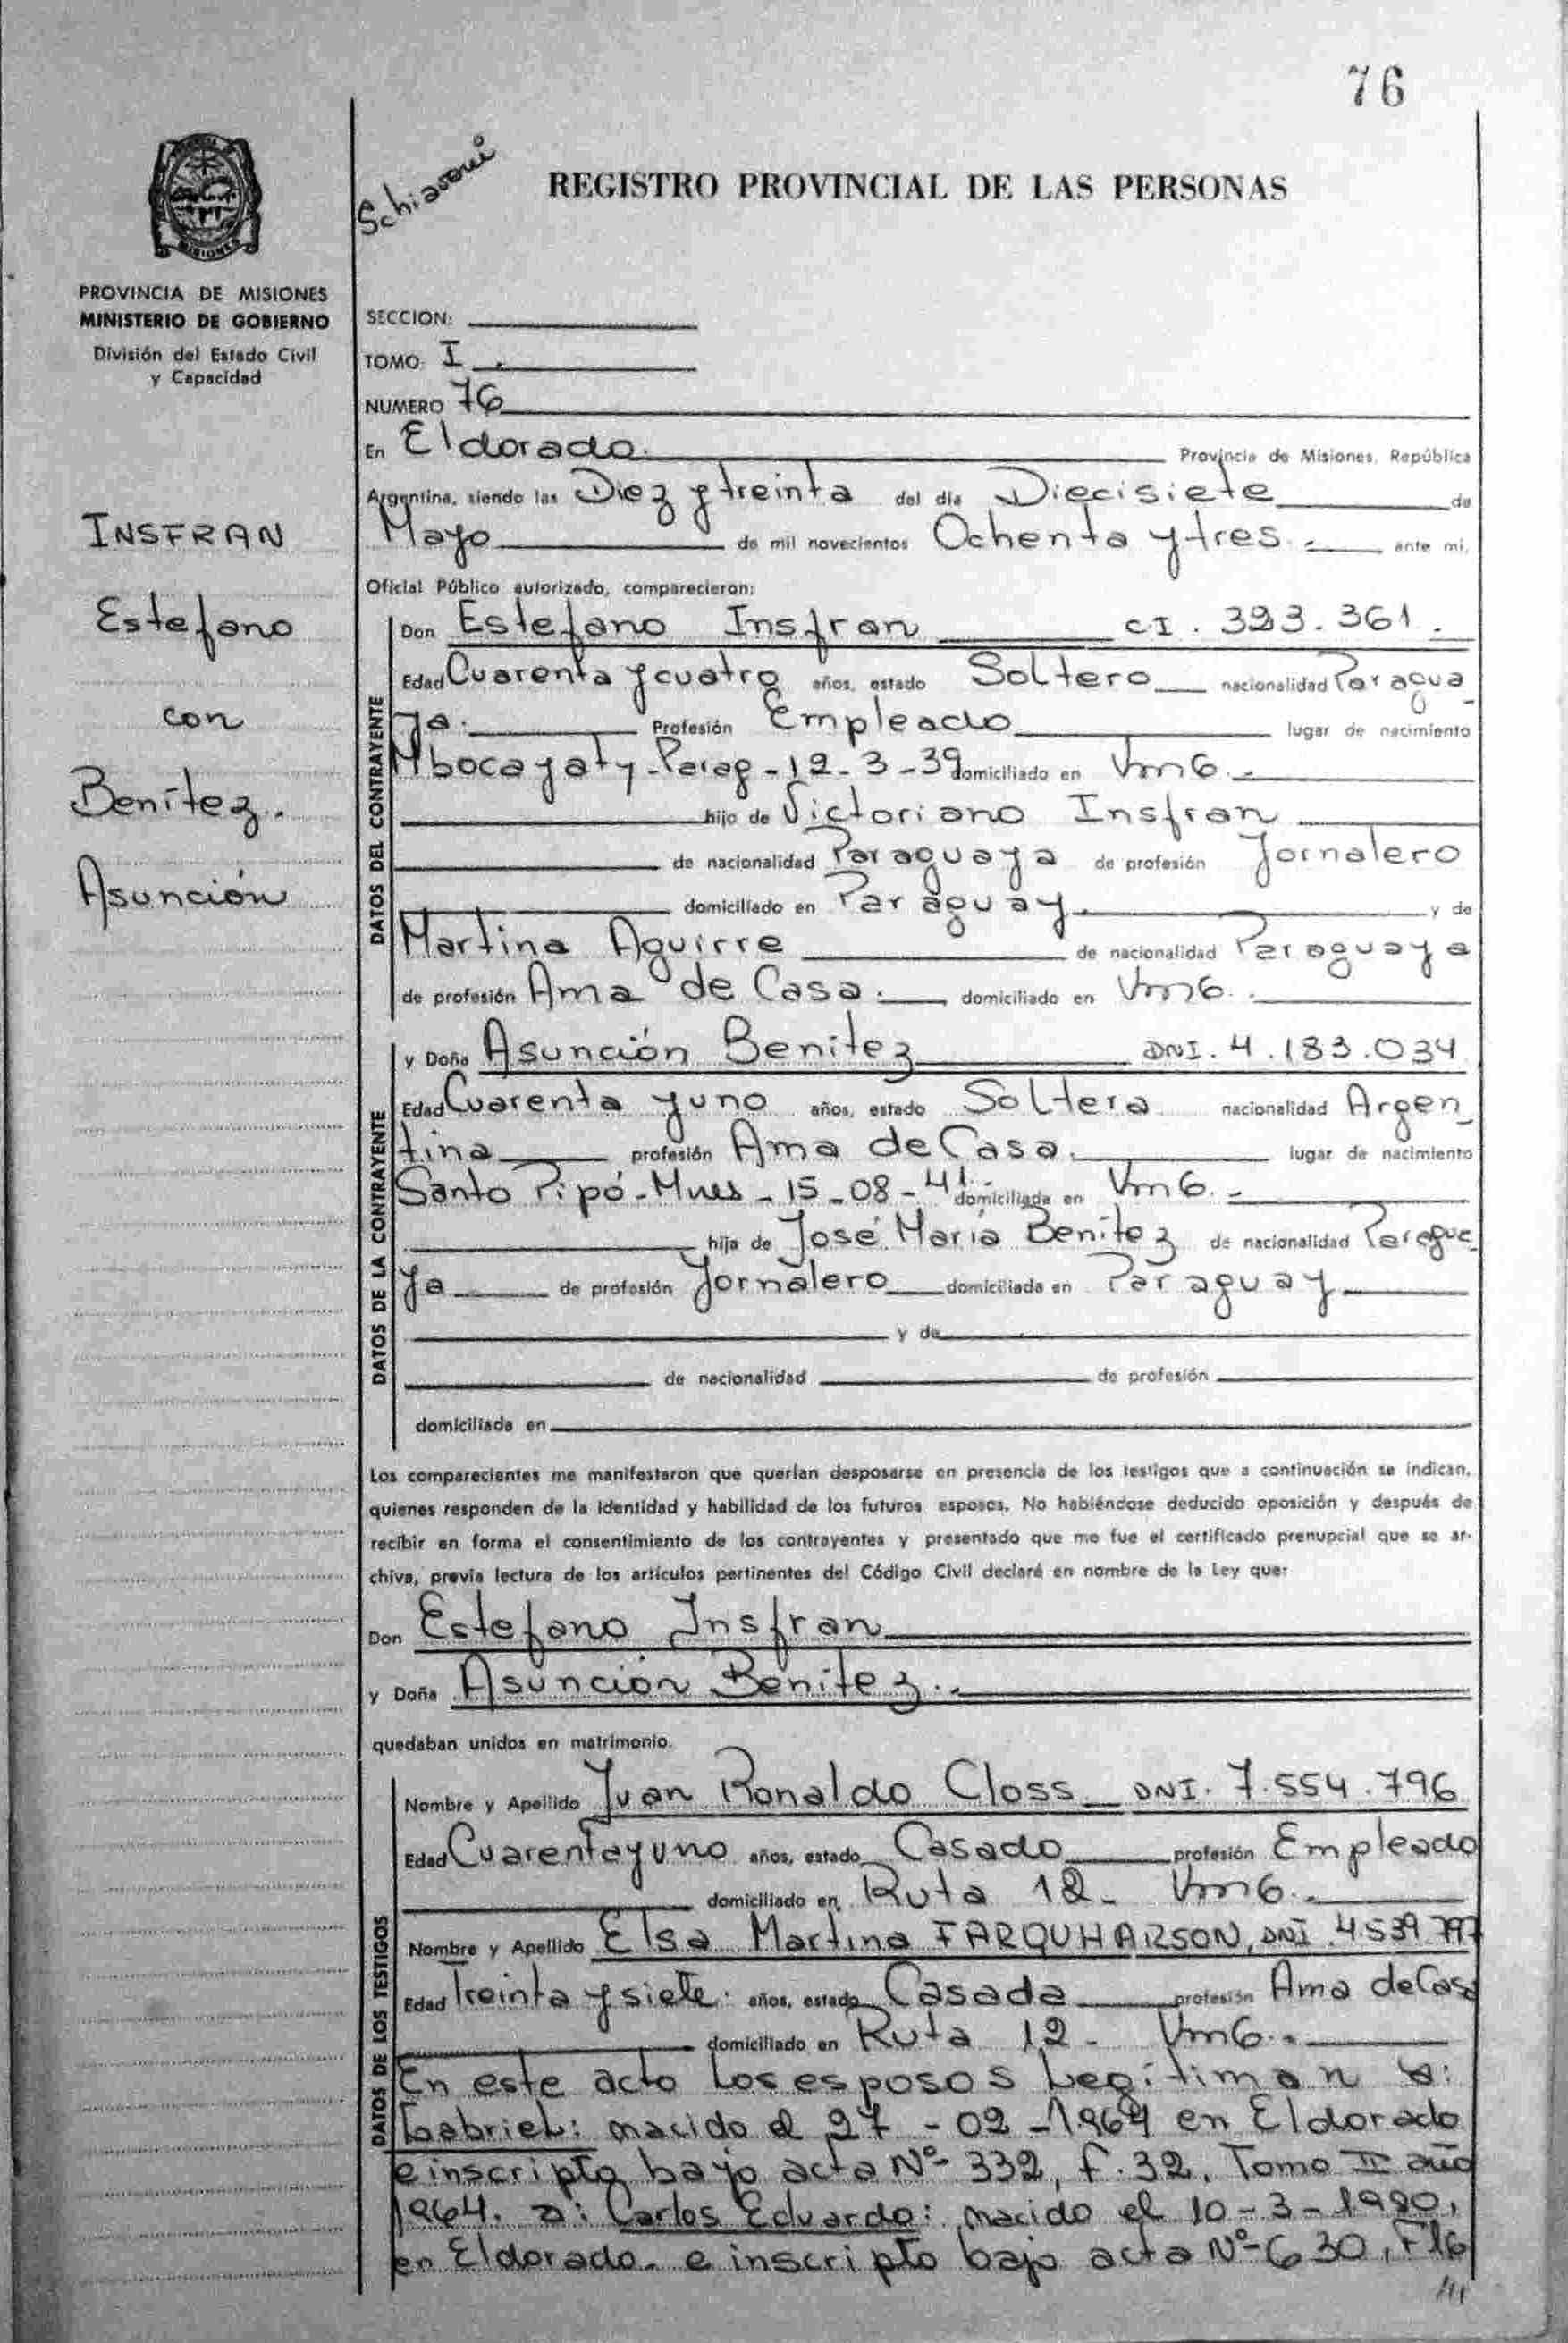 76
Schiavoni
REGISTRO PROVINCIAL DE LAS PERSONAS
MISIONES
PROVINCIA DE MISIONES
MINISTERIO DE GOBIERNO
División del Estado Civil
y Capacidad
INSFRAN
Estefano
con
Benítez.
Asunción
SECCION:
TOMO: I
NUMERO 76
En Eldorado. Provincia de Misiones, República
Argentina, siendo las Diez y treinta del día Diecisiete de
Mayo de mil novecientos Ochenta y tres.- ante mí,
Oficial Público autorizado, comparecieron:
DATOS DEL CONTRAYENTE
Don Estefano Insfran CI. 393.361.
Edad Cuarenta y cuatro años, estado Soltero nacionalidad Paragua
ya. Profesión Empleado lugar de nacimiento
Mbocayaty-Parag-12-3-39 domiciliado en Vm6.-
hijo de Victoriano Insfran
de nacionalidad Paraguaya de profesión Jornalero
domiciliado en Paraguay y de
Martina Aguirre de nacionalidad Paraguaya
de profesión Ama de Casa. domiciliado en Vm6.
DATOS DE LA CONTRAYENTE
y Doña Asunción Benítez DNI. 4.183.034
Edad Cuarenta y uno años, estado Soltera nacionalidad Argen_
tina profesión Ama de Casa. lugar de nacimiento
Santo Pipó-Mnes-15-08-41. domiciliada en Vm6.-
hija de José María Benítez de nacionalidad Paragua
ya de profesión Jornalero domiciliada en Paraguay
y de
de nacionalidad de profesión
domiciliada en
Los comparecientes me manifestaron que querían desposarse en presencia de los testigos que a continuación se indican,
quienes responden de la identidad y habilidad de los futuros esposos. No habiéndose deducido oposición y después de
recibir en forma el consentimiento de los contrayentes y presentado que me fue el certificado prenupcial que se ar-
chiva, previa lectura de los artículos pertinentes del Código Civil declaré en nombre de la Ley que:
Don Estefano Insfran
y Doña Asunción Benítez.-
quedaban unidos en matrimonio.
DATOS DE LOS TESTIGOS
Nombre y Apellido Juan Ronaldo Closs DNI. 7.554.796
Edad Cuarenta y uno años, estado Casado profesión Empleado
domiciliado en Ruta 12- Vm6.-
Nombre y Apellido Elsa Martina FARQUHARSON, DNI. 4.539.797
Edad Treinta y siete. años, estado Casada profesión Ama de Casa
domiciliado en Ruta 12- Vm6.-
En este acto Los esposos Legítiman a:
Gabriel: nacido el 27-02-1964 en Eldorado
e inscripto bajo acta Nº 332, f. 32, Tomo II año
1964. a: Carlos Eduardo: nacido el 10-3-1980,
en Eldorado. e inscripto bajo acta Nº 630, F16
///